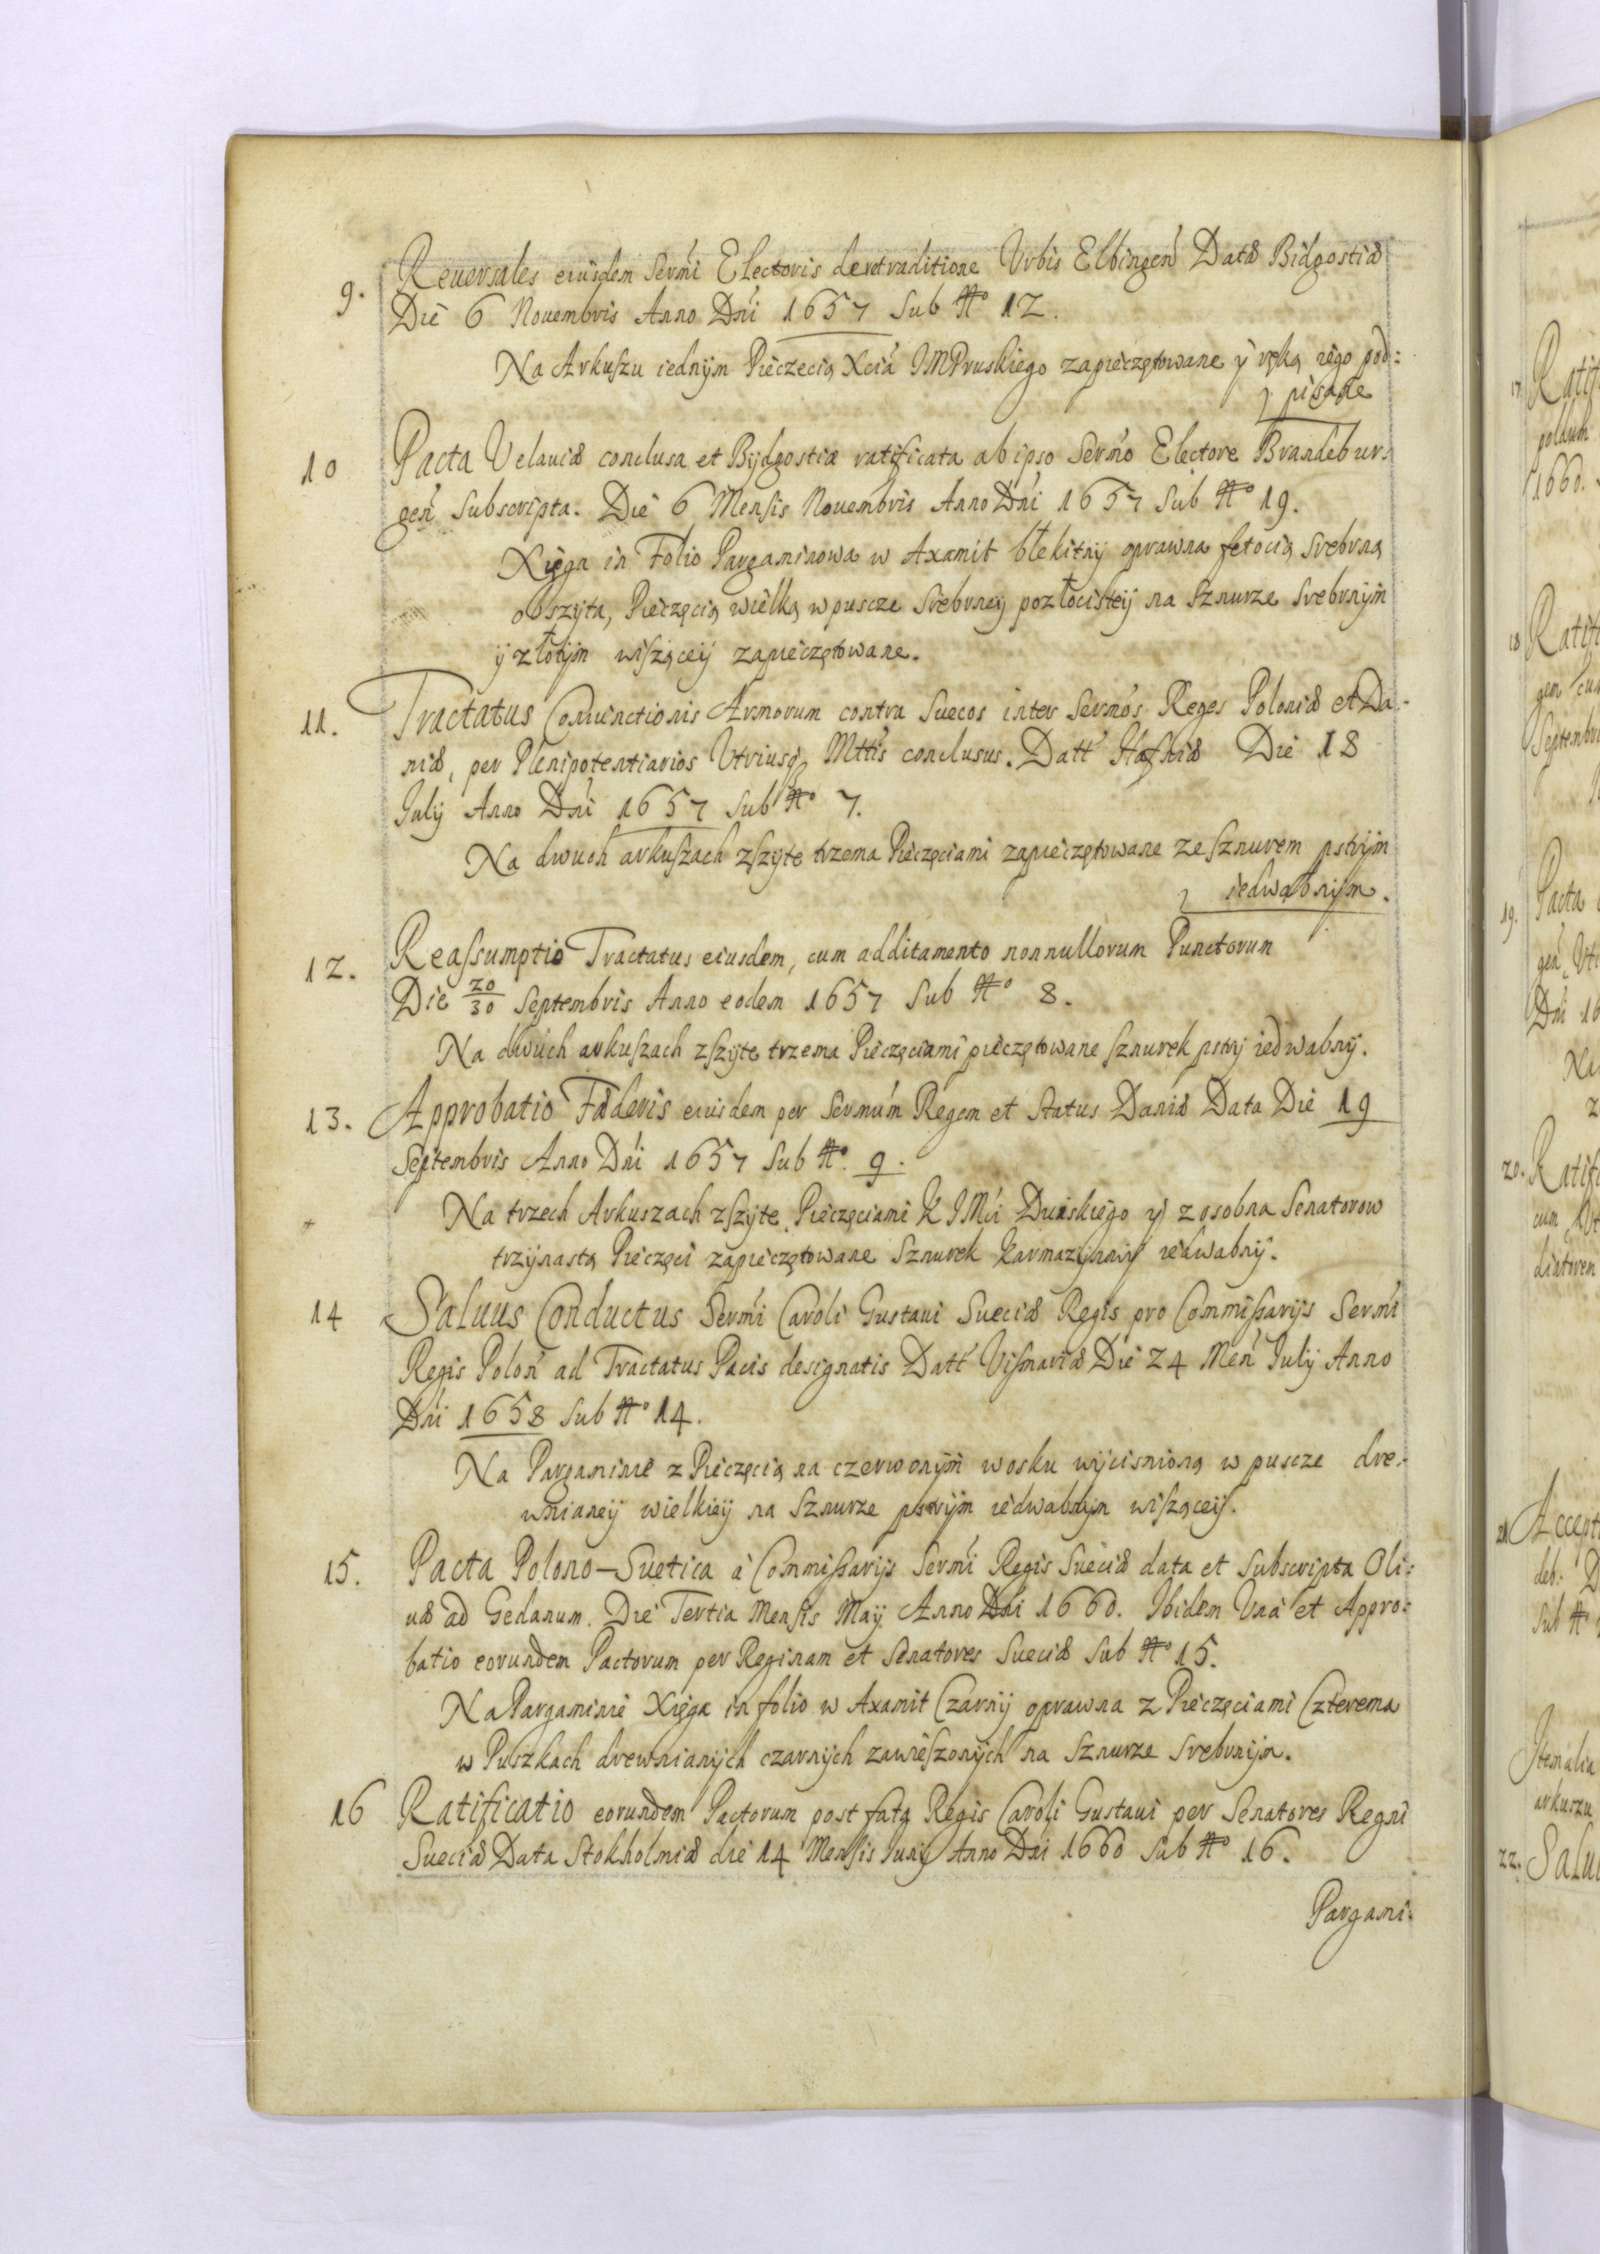 9. Reuersales eiusdem Sermi Electoris de retraditione Vrbis Elbingen Datæ Bidgostiæ
Die 6 Nouembris Anno Dni 1657 Sub No 12.
Na Arkuszu iednym Pieczecią Xcia JM Pruskiego zapieczętowane y ręką iego pod:
pisane
10 Pacta Velauiæ conclusa et Bydgostiæ ratificata ab ipso Sermo Electore Brandebur:
gen subscripta. Die 6 Mensis Nouembris Anno Dni 1657 Sub No 19.
Xięga in Folio Pargaminowa w Axamit błekitny oprawna fetocią srebrną
obszyta, Pieczęcią wielką w puscze srebrney pozłocistey na Sznurze srebrnym
y złotym wiszącey zapieczętowane.
11. Tractatus Coniunctionis Armorum contra Suecos inter Sermos Reges Poloniæ et Da-
niæ, per Plenipotentiarios Vtriusq Mttis conclusus. Datt Hafniæ Die 18
July Anno Dni 1657 Sub No 7.
Na dwuch arkuszach zszyte trzema Pieczęciami zapieczętowane ze sznurem pstrym
iedwabnym.
12. Reassumptio Tractatus eiusdem, cum additamento nonnullorum Punctorum
Die 20/30 Septembris Anno eodem 1657 Sub No 8.
Na dwuch arkuszach zszyte trzema Pieczęciami pieczętowane sznurek pstry iedwabny.
13. Approbatio Fæderis eiusdem per Sermum Regem et Status Daniæ Data Die 19
Septembris Anno Dni 1657 Sub No. 9.
Na trzech Arkuszach zszyte Pieczęciami K JMci Duńskiego y z osobna Senatorow
trzynastą Pieczęci zapieczętowane Sznurek Karmazynny iedwabny.
14 Saluus Conductus Sermi Caroli Gustaui Sueciæ Regis pro Commissarijs Sermi
Regis Polon ad Tractatus Pacis designatis Datt Vismariæ Die 24 Men July Anno
Dni 1658 Sub No 14.
Na Pargaminie z Pieczęcią na czerwonym wosku wycisnioną w puscze dre-
wnianey wielkiey na Sznurze pstrym iedwabnym wiszącey.
15. Pacta Polono-Suetica à Commissarijs Sermi Regis Sueciæ data et subscripta Oli:
uæ ad Gedanum. Die Tertia Mensis May Anno Dni 1660. Ibidem Vna et Appro:
batio eorundem Pactorum per Reginam et Senatores Sueciæ Sub No 15.
Na Pargaminie Xięga in folio w Axamit Czarny oprawna z Pieczęciami Czterema
w Puszkach drewnianych czarnych zawieszonych na Sznurze srebrnym.
16 Ratificatio eorundem Pactorum post fata Regis Caroli Gustaui per Senatores Regni
Sueciæ Data Stokholmiæ die 14 Mensis Juny Anno Dni 1660 Sub No 16.
Pargami: